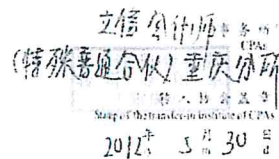 立信会计师事务所
CPAs
(特殊普通合伙)重庆分所
转入协会盖章
Stamp of the transfer-in Institute of CPAs
2012年 5月 30日